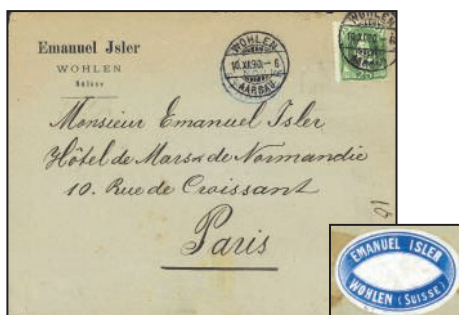 Emanuel Jsler
WOHLEN
Suisse
WOHLEN
10.XII.90.-6
AARGAU
WOHLEN
AARGAU
25
Monsieur Emanuel Isler
Hôtel de Mars & de Normandie
10. Rue de Croissant
Paris
EMANUEL ISLER
WOHLEN (SUISSE)